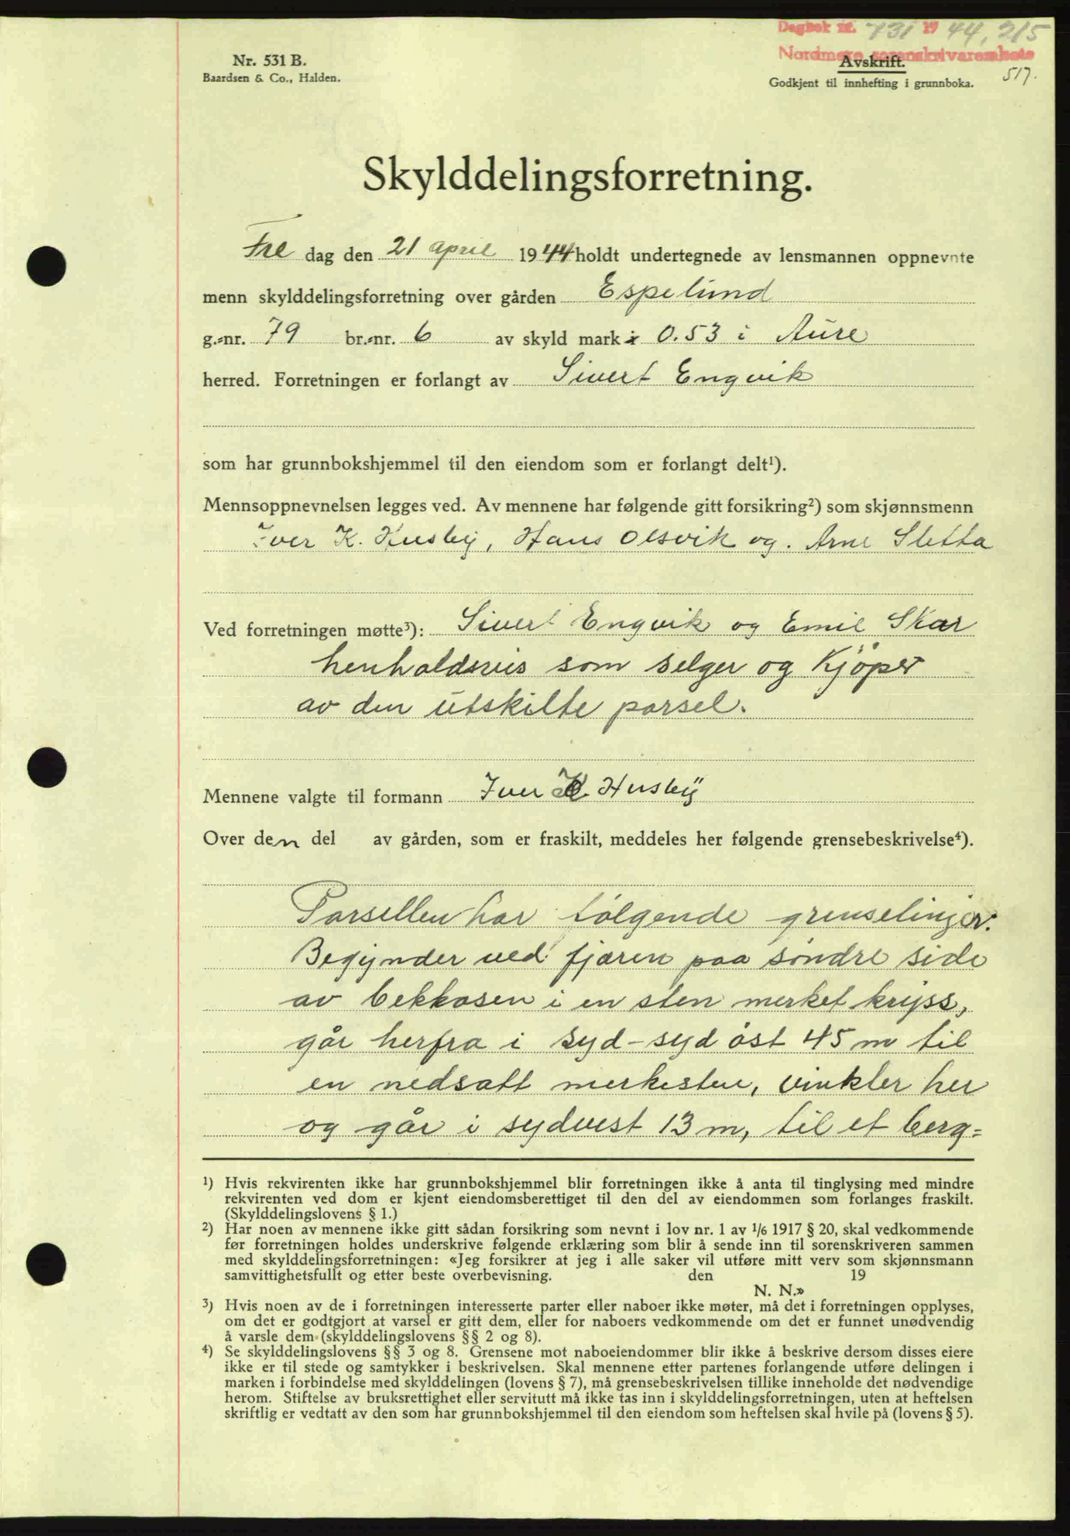 Dagbok nr. 731 19 44, 215
Nordmøre sorenskriverembete
517.
Nr. 531 B.
Baardsen & Co., Halden.
Avskrift.
Godkjent til innhefting i grunnboka.
Skylddelingsforretning.
Fre dag den 21 april 1944 holdt undertegnede av lensmannen oppnevnte
menn skylddelingsforretning over gården Espelund
g.-nr. 79 br.-nr. 6 av skyld mark 0.53 i Aure
herred. Forretningen er forlangt av Sivert Engvik
som har grunnbokshjemmel til den eiendom som er forlangt delt¹).
Mennsoppnevnelsen legges ved. Av mennene har følgende gitt forsikring²) som skjønnsmenn
Iver K. Husby, Hans Olsvik og. Arne Sletta
Ved forretningen møtte³): Sivert Engvik og Emil Skar
henholdsvis som selger og Kjöper
av den utskilte parsel.
Mennene valgte til formann Iver K. Husby
Over den del av gården, som er fraskilt, meddeles her følgende grensebeskrivelse⁴).
Parsellen har følgende grenselinjer:
Begynder ved fjæren paa söndre side
av bekkosen i en sten merket kryss,
går herfra i syd-syd öst 45 m til
en nedsatt merkesten, vinkler her
og går i sydvest 13 m, til et berg=
¹) Hvis rekvirenten ikke har grunnbokshjemmel blir forretningen ikke å anta til tinglysing med mindre
rekvirenten ved dom er kjent eiendomsberettiget til den del av eiendommen som forlanges fraskilt.
(Skylddelingslovens § 1.)
²) Har noen av mennene ikke gitt sådan forsikring som nevnt i lov nr. 1 av 1/6 1917 § 20, skal vedkommende
før forretningen holdes underskrive følgende erklæring som blir å sende inn til sorenskriveren sammen
med skylddelingsforretningen: «Jeg forsikrer at jeg i alle saker vil utføre mitt verv som skjønnsmann
samvittighetsfullt og etter beste overbevisning. den 19
N. N.»
³) Hvis noen av de i forretningen interesserte parter eller naboer ikke møter, må det i forretningen opplyses,
om det er godtgjort at varsel er gitt dem, eller for naboers vedkommende om det er funnet unødvendig
å varsle dem (skylddelingslovens §§ 2 og 8).
⁴) Se skylddelingslovens §§ 3 og 8. Grensene mot naboeiendommer blir ikke å beskrive dersom disses eiere
ikke er til stede og samtykker i beskrivelsen. Skal mennene etter partenes forlangende utføre delingen i
marken i forbindelse med skylddelingen (lovens § 7), må grensebeskrivelsen tillike inneholde det nødvendige
herom. Stiftelse av bruksrettighet eller servitutt må ikke tas inn i skylddelingsforretningen, uten at heftelsen
skriftlig er vedtatt av den som har grunnbokshjemmel til den eiendom som heftelsen skal hvile på (lovens § 5).